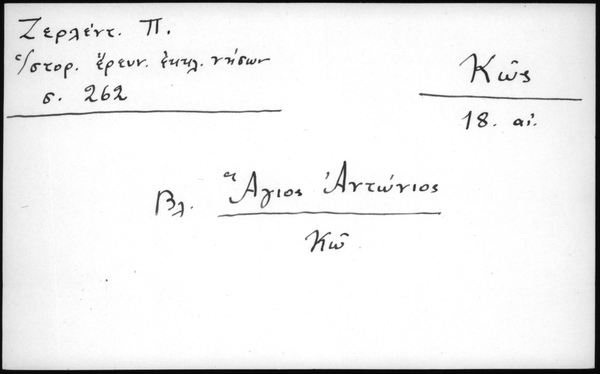 Ζερλέντ. Π.
Ἱστορ. ἔρευν. ἐκκλ. νήσων
σ. 262
Κῶς
18. αἰ.
Βλ. Ἅγιος Ἀντώνιος
Κῶ